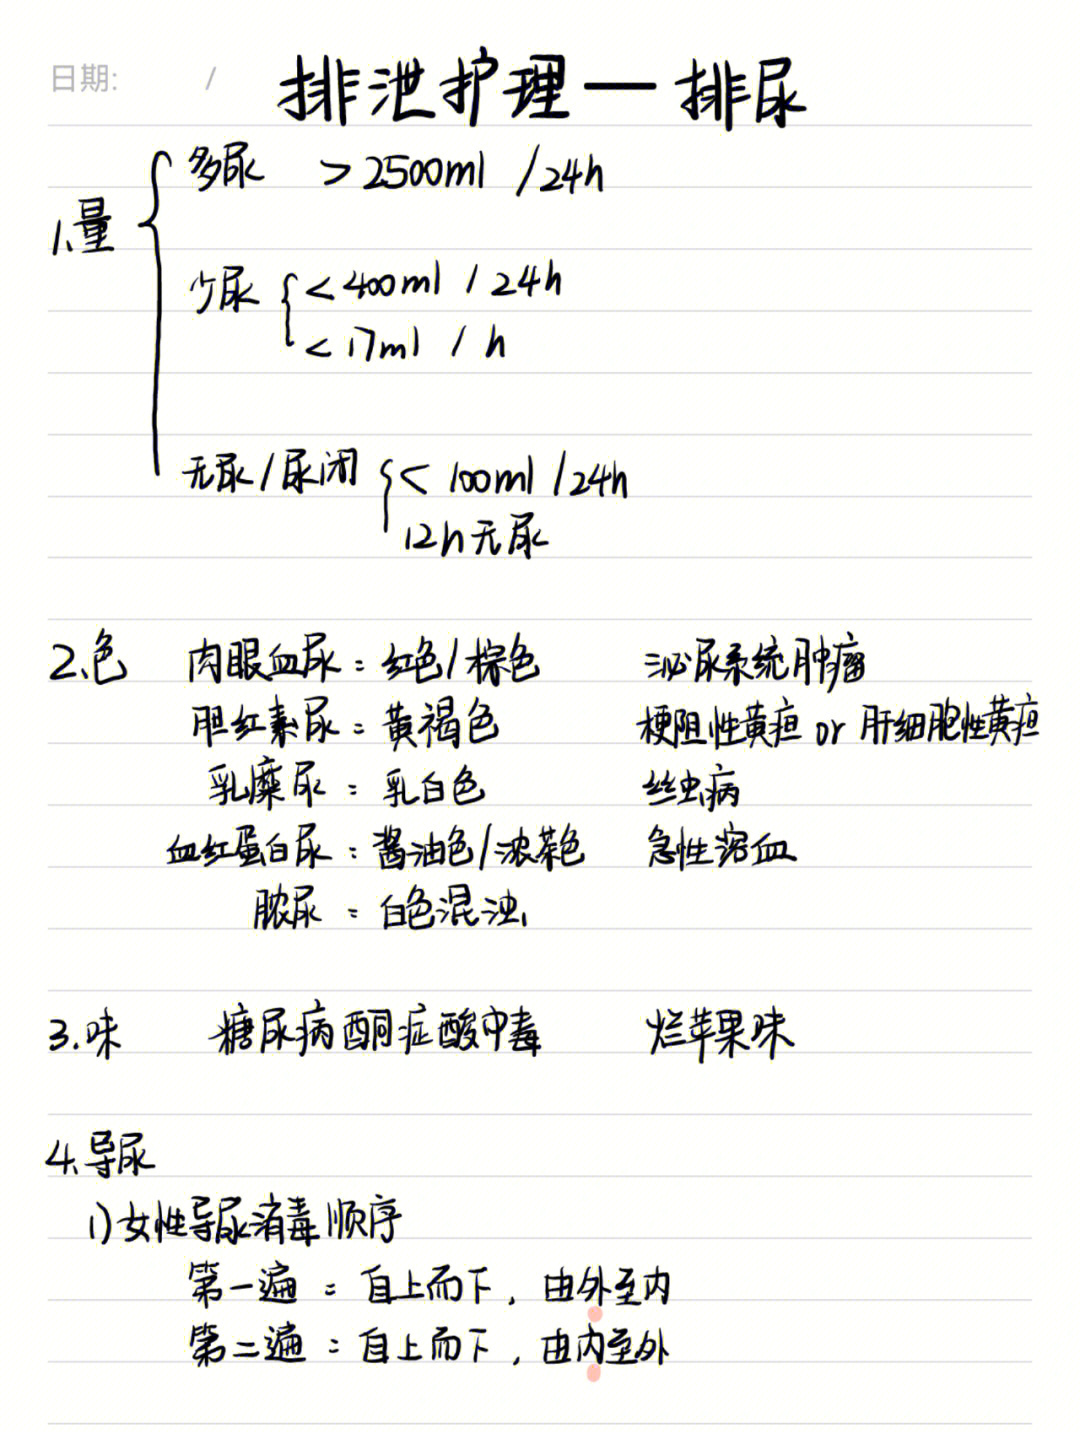 日期: /
排泄护理一排尿
1.量
多尿 >2500ml /24h
少尿 <400ml / 24h
<17ml / h
无尿/尿闭 < 100ml /24h
12h无尿
2.色 肉眼血尿:红色/棕色 泌尿系统肿瘤
胆红素尿:黄褐色 梗阻性黄疸 or 肝细胞性黄疸
乳糜尿:乳白色 丝虫病
血红蛋白尿:酱油色/浓茶色 急性溶血
脓尿:白色混浊
3.味 糖尿病酮症酸中毒 烂苹果味
4.导尿
1)女性导尿消毒顺序
第一遍:自上而下,由外至内
第二遍:自上而下,由内至外